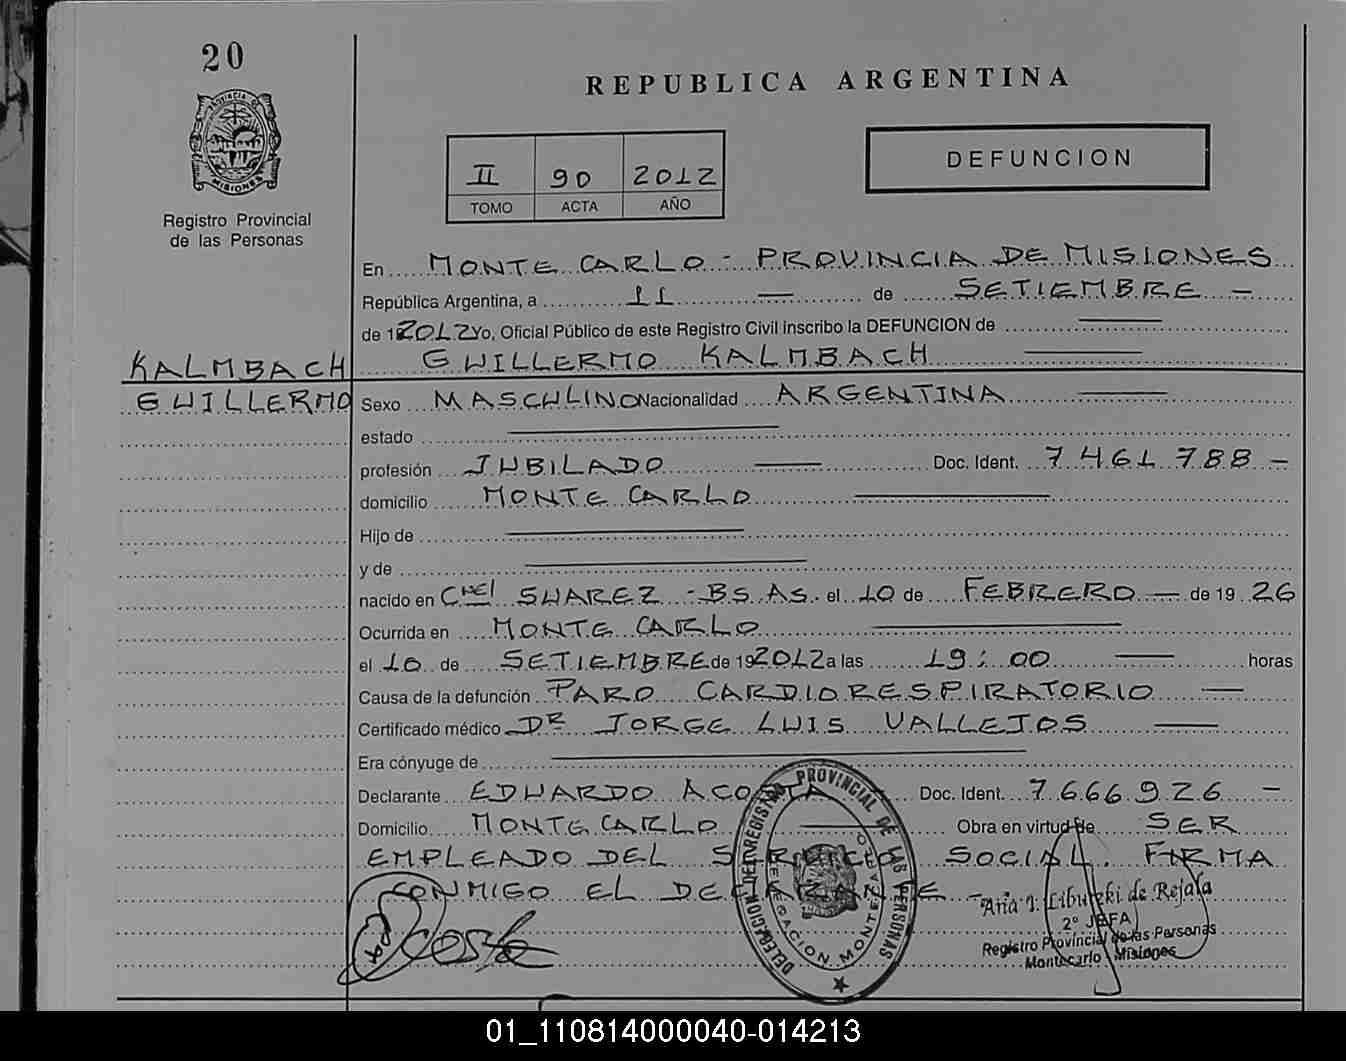 20
PROVINCIA DE
MISIONES
Registro Provincial
de las Personas
REPUBLICA ARGENTINA
II 90 2012
TOMO ACTA AÑO
DEFUNCION
En MONTE CARLO - PROVINCIA DE MISIONES
República Argentina, a 11 — de SETIEMBRE —
de 12012 Yo, Oficial Público de este Registro Civil inscribo la DEFUNCION de
GUILLERMO KALMBACH
KALMBACH
GUILLERMO
Sexo MASCULINO Nacionalidad ARGENTINA
estado
profesión JUBILADO Doc. Ident. 7461788 -
domicilio MONTE CARLO
Hijo de
y de
nacido en Cnel SUAREZ - BS.AS. el 10 de FEBRERO — de 19 26
Ocurrida en MONTE CARLO
el 10 de SETIEMBRE de 192012 a las 19:00 horas
Causa de la defunción PARO CARDIORESPIRATORIO
Certificado médico DR JORGE LUIS VALLEJOS
Era cónyuge de
Declarante EDUARDO ACOSTA Doc. Ident. 7666926 -
Domicilio MONTE CARLO Obra en virtud de SER
EMPLEADO DEL SERVICIO SOCIAL. FIRMA
CONMIGO EL DECLARANTE -
Acosta
DELEGACION DEL REGISTRO PROVINCIAL DE LAS PERSONAS
DELEGACION MONTECARLO
2º JEFA
Registro Provincial de las Personas
Montecarlo Misiones
01_110814000040-014213